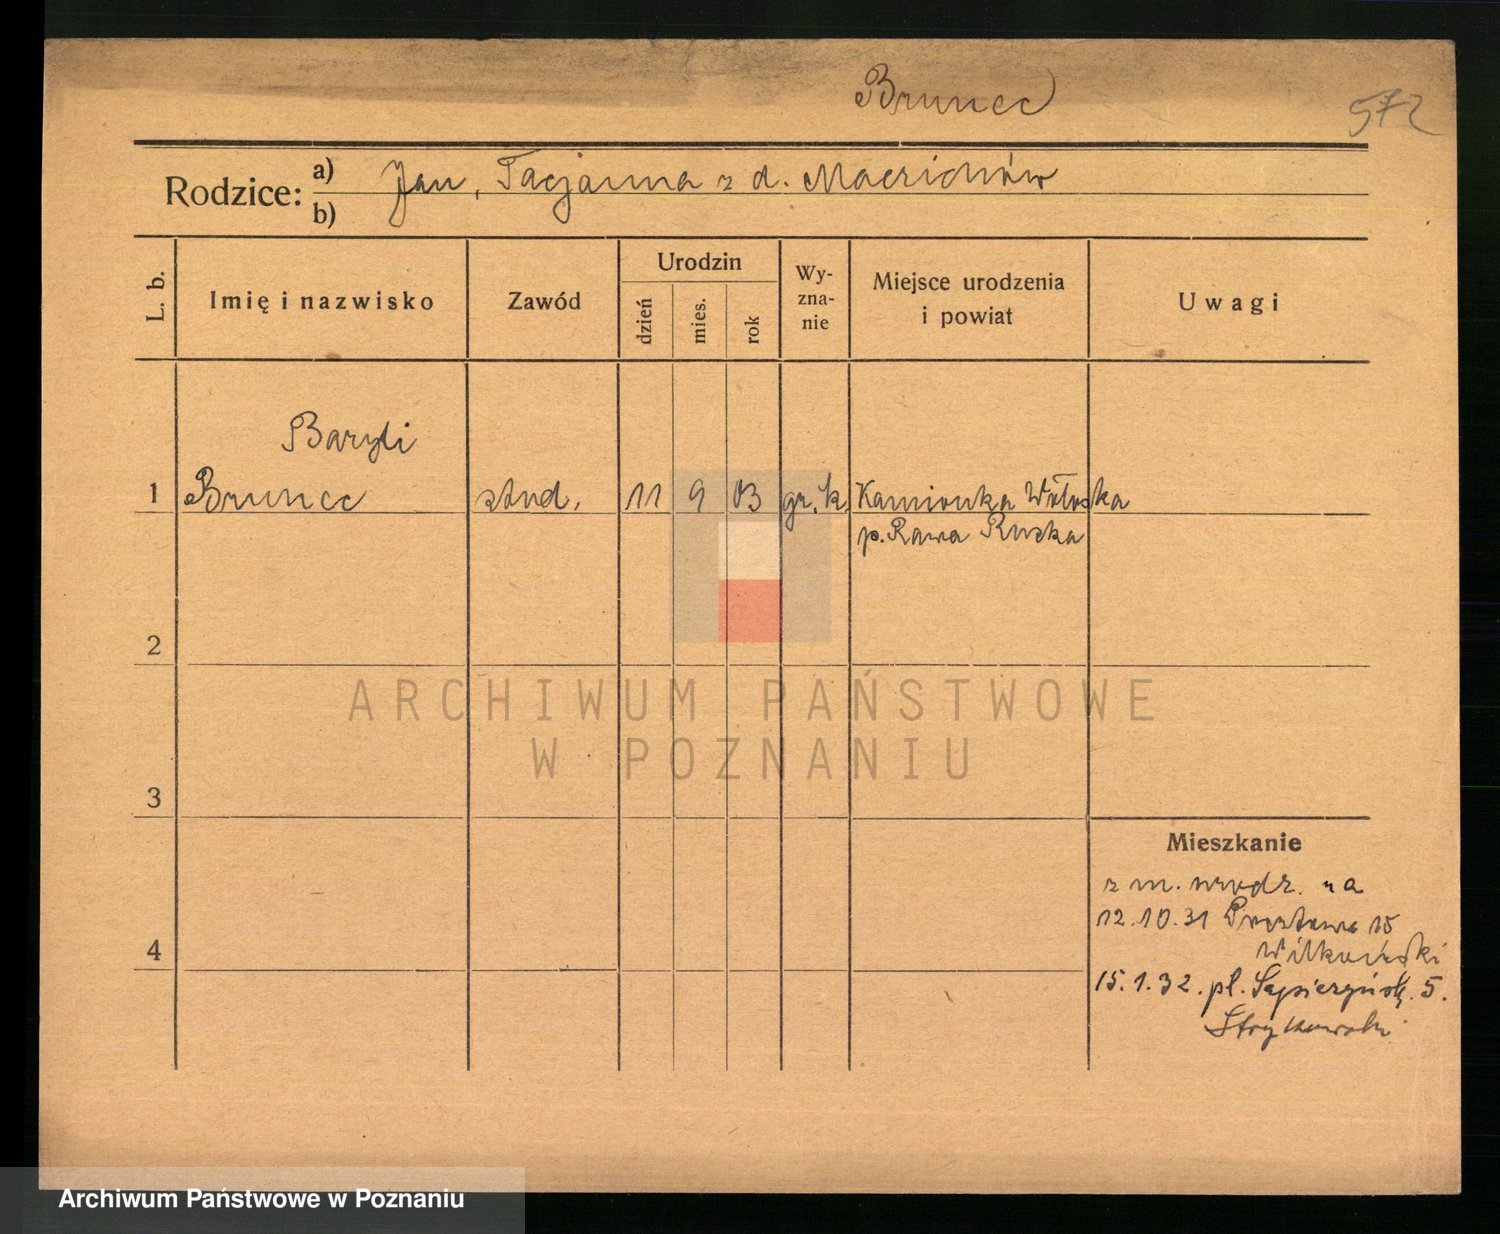 Brunec
572
Rodzice: a) Jan, Tacjanna z d.
b)
L. b.
Imię i nazwisko
Zawód
Urodzin
dzień
mies.
rok
Wy-
zna-
nie
Miejsce urodzenia
i powiat
Uwagi
Baryli
1 Brunec stud. 11 9 03 gr. k. Kamionka Wołoska
p. Rawa Ruska
2
ARCHIWUM PAŃSTWOWE
W POZNANIU
3
Mieszkanie
z m. urodz. na
12.10.31 15
4
15.1.32. pl. Sapieżyńsk. 5.
Strykowski
Archiwum Państwowe w Poznaniu